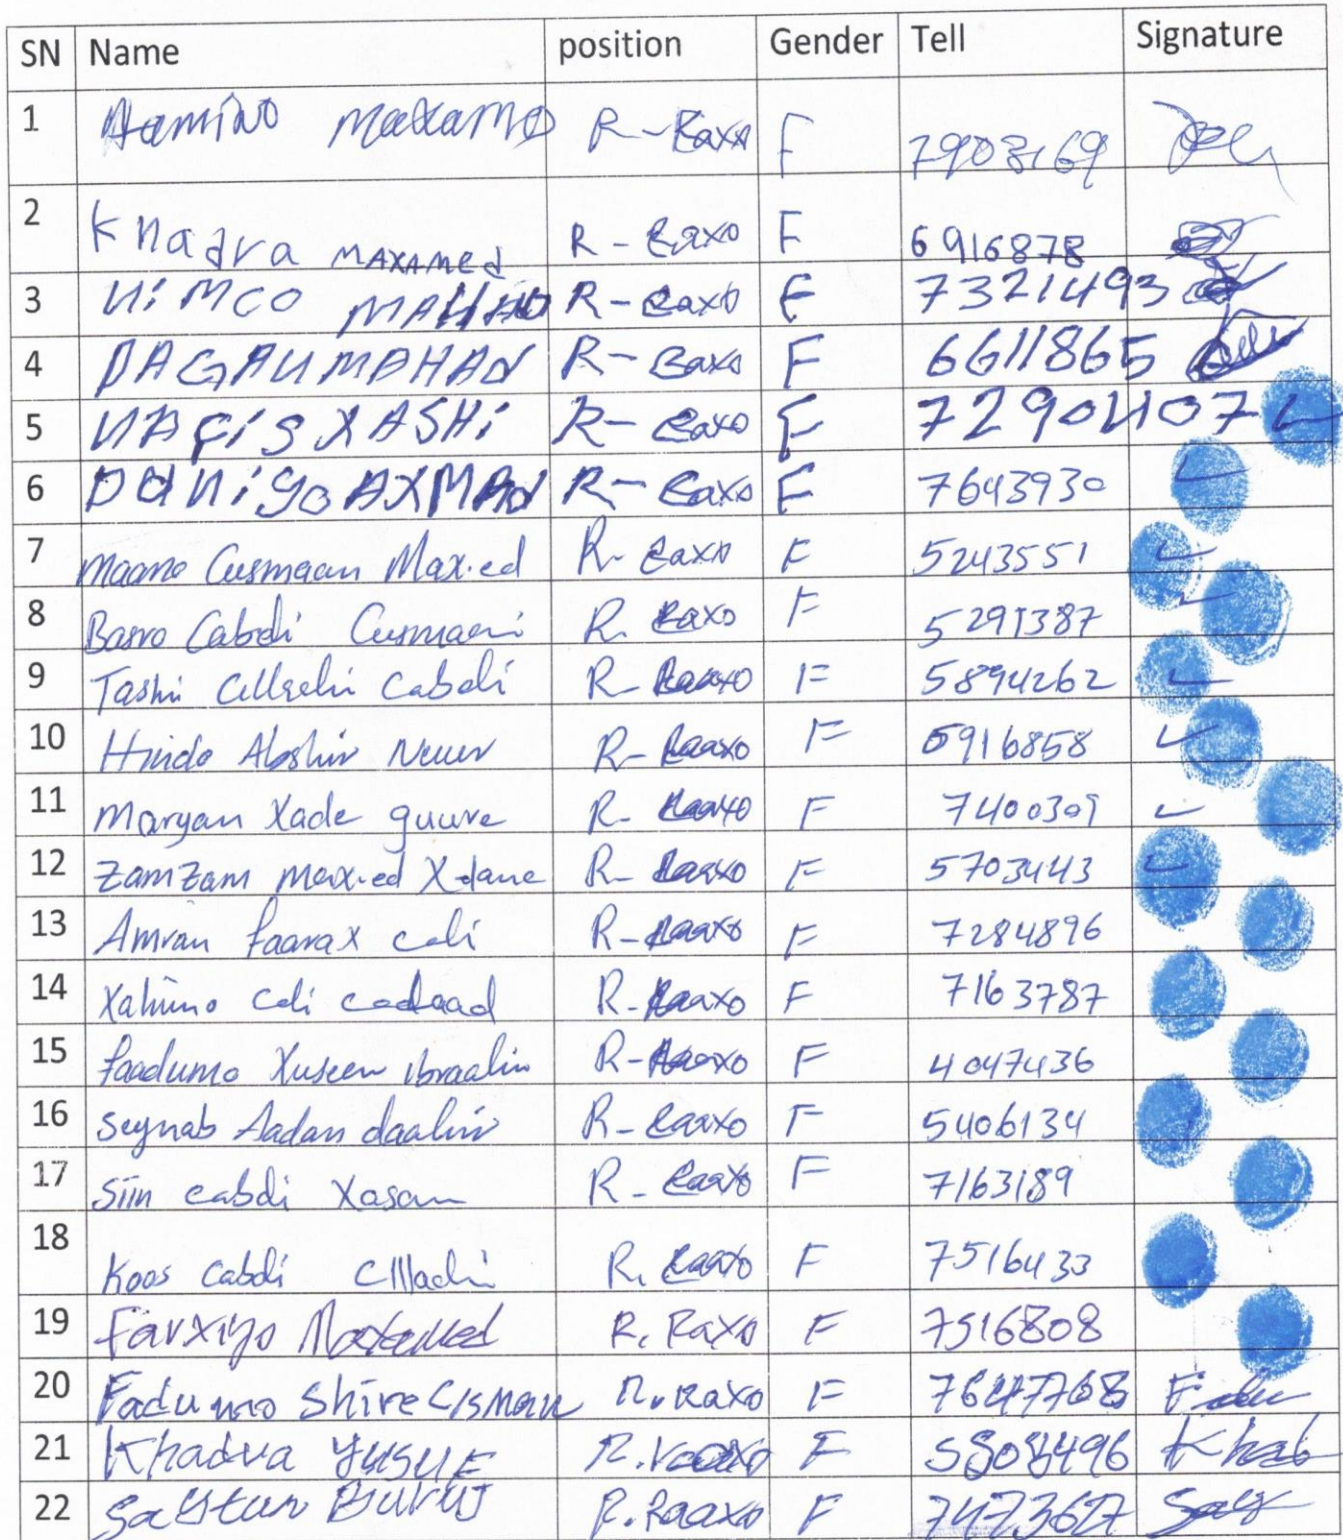 SN Name position Gender Tell Signature
1 Hamiino Maxamed R-Raxo F 7903169
2 Khadra MAXAMed R-Raxo F 6916878
3 NiMCO MAHAD R-Raxo F 7321493
4 DAGAN MAHAD R-Raxo F 6611865
5 NAFiS XASHi R-Raxo F 72904107
6 DUNiyo AXMAd R-Raxo F 7643930
7 Maano Cusmaan Max.ed R-Raxo F 5243551
8 Basro Cabdi Cusmaan R. Raxo F 5291387
9 Tashi Cabdi R-Raaxo F 5894262
10 Hindo Abshir Nuur R-Raaxo F 6916858
11 Maryan Xade guure R-Raaxo F 7400309
12 ZamZam Max.ed R-Raaxo F 5703443
13 Amran faarax cali R-Raaxo F 7284896
14 Xaliimo cali R-Raaxo F 7163787
15 faadumo Xuseen ibraahin R-Raaxo F 4047436
16 Seynab Aadan daahir R-Raaxo F 5406134
17 Siin cabdi Xasan R-Raaxo F 7163189
18 Koos Cabdi Cllaahi R. Raaxo F 7516433
19 Farxiyo Maxamed R. Raxo F 7516808
20 Fadumo Shire Cisman R. Raxo F 7647768
21 Khadra YUSUF R. Raaxo F 5808496 Khad
22 R. Raaxo F 7473627